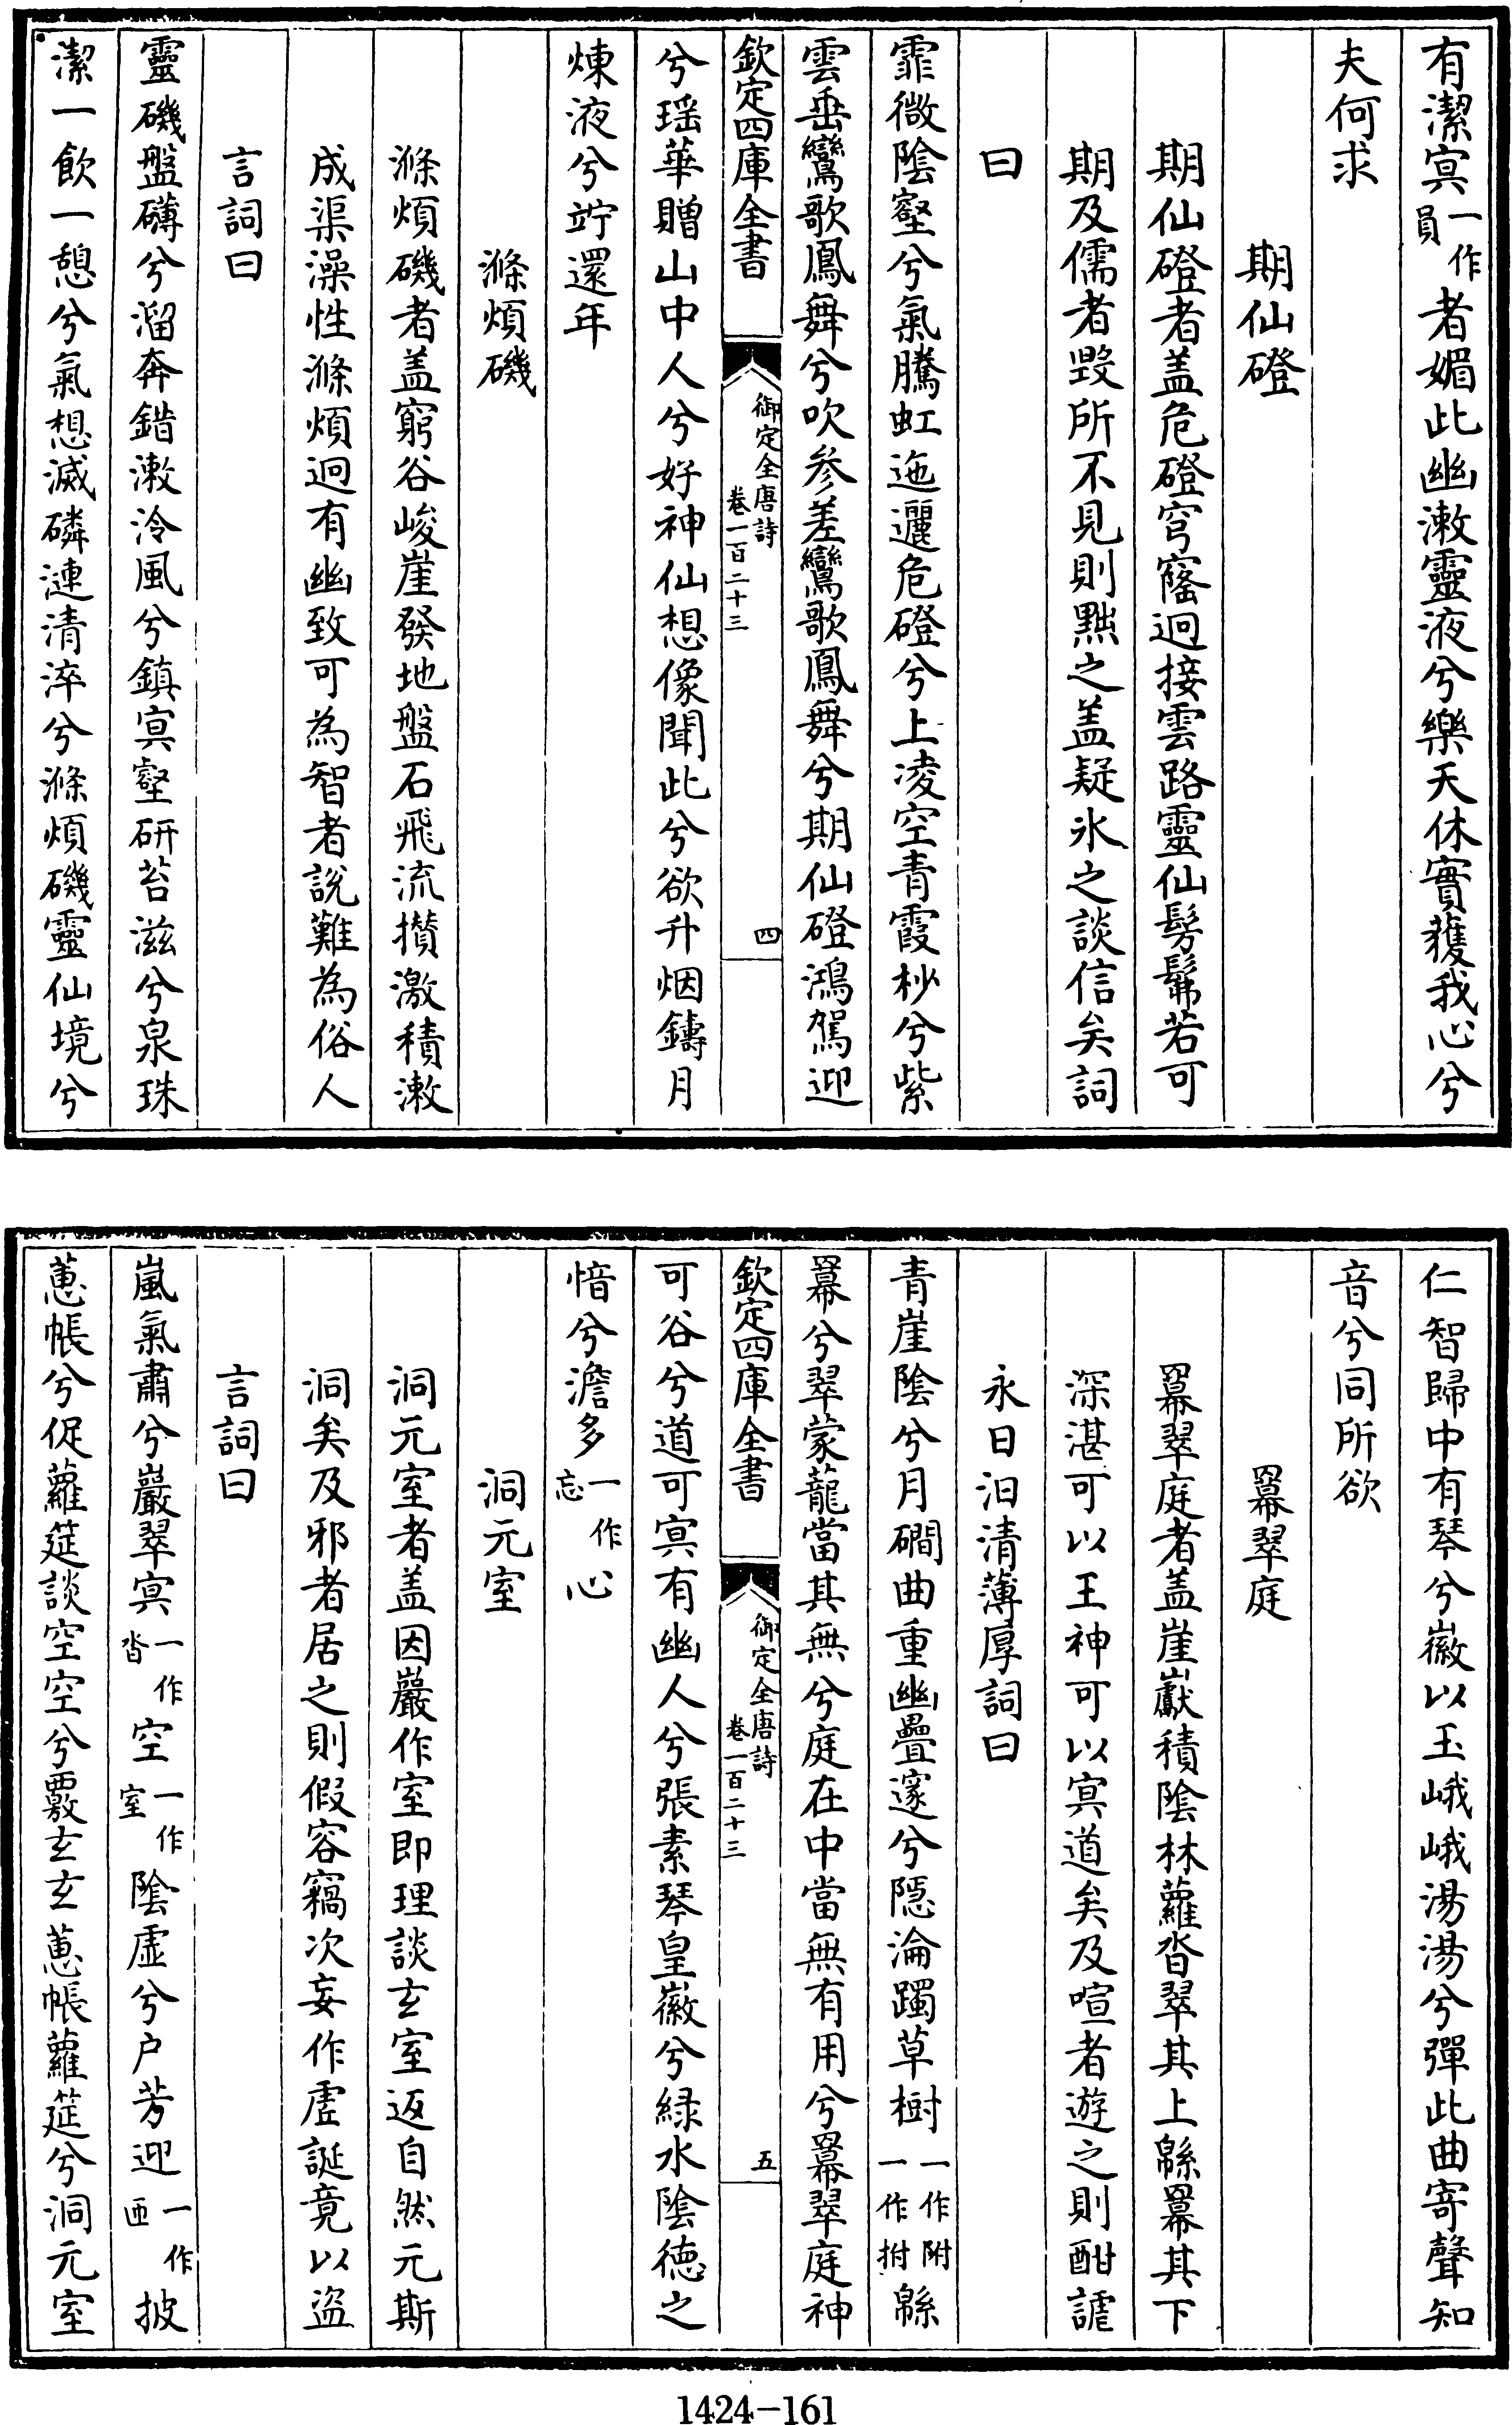 有潔冥一作員者媚此幽漱靈液兮樂天休實獲我心兮
夫何求
期仙磴
期仙磴者盖危磴穹窿迥接雲路靈仙髣髴若可
期及儒者毁所不見則黜之盖疑氷之談信矣詞
曰
霏微陰壑兮氣騰虹迤邐危磴兮上凌空青霞杪兮紫
雲垂鸞歌鳳舞兮吹參差鸞歌鳳舞兮期仙磴鴻駕迎
欽定四庫全書
御定全唐詩
卷一百二十三
四
兮瑶華贈山中人兮好神仙想像聞此兮欲升烟鑄月
煉液兮竚還年
滌煩磯
滌煩磯者盖窮谷峻崖發地盤石飛流攢激積漱
成渠澡性滌煩迥有幽致可為智者說難為俗人
言詞曰
靈磯盤礴兮溜奔錯漱泠風兮鎮冥壑研苔滋兮泉珠
潔一飲一憩兮氣想滅磷漣清淬兮滌煩磯靈仙境兮
仁智歸中有琴兮徽以玉峨峨湯湯兮彈此曲寄聲知
音兮同所欲
羃翠庭
羃翠庭者盖崖巘積陰林蘿沓翠其上緜羃其下
深湛可以王神可以冥道矣及喧者遊之則酣謔
永日汨清薄厚詞曰
青崖陰兮月磵曲重幽疊邃兮隠淪躅草樹一作附一作拊緜
羃兮翠蒙蘢當其無兮庭在中當無有用兮羃翠庭神
欽定四庫全書
御定全唐詩
卷一百二十三
五
可谷兮道可冥有幽人兮張素琴皇徽兮緑水陰徳之
愔兮澹多一作忘心
洞元室
洞元室者盖因巖作室即理談玄室返自然元斯
洞矣及邪者居之則假容竊次妄作虛誕竟以盗
言詞曰
嵐氣肅兮巖翠冥一作沓空一作室陰虛兮户芳迎一作匝披
蕙帳兮促蘿筵談空空兮覈玄玄蕙帳蘿筵兮洞元室
1424-161